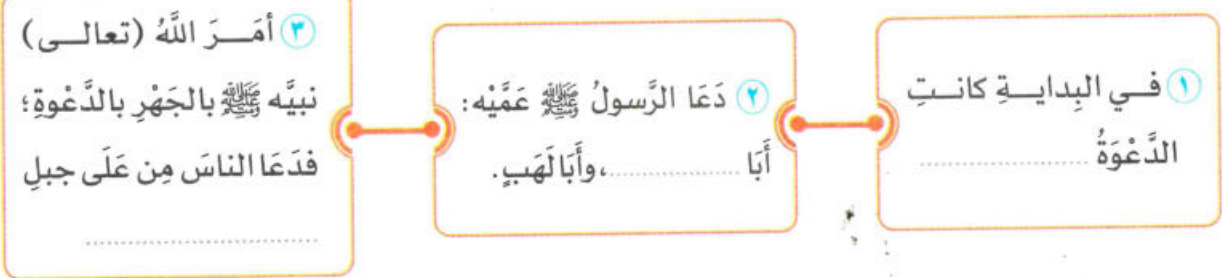 ١ فـي البِدايـــةِ كانــتِ
الدَّعْوَةُ ......................
٢ دَعَا الرَّسولُ ﷺ عَمَّيْه:
أَبَا ..................، وأَبَا لَهَبٍ.
٣ أمَـــرَ اللَّهُ (تعالــى)
نبيَّه ﷺ بالجَهْرِ بالدَّعْوةِ؛
فدَعَا الناسَ مِن عَلَى جبلِ
..............................